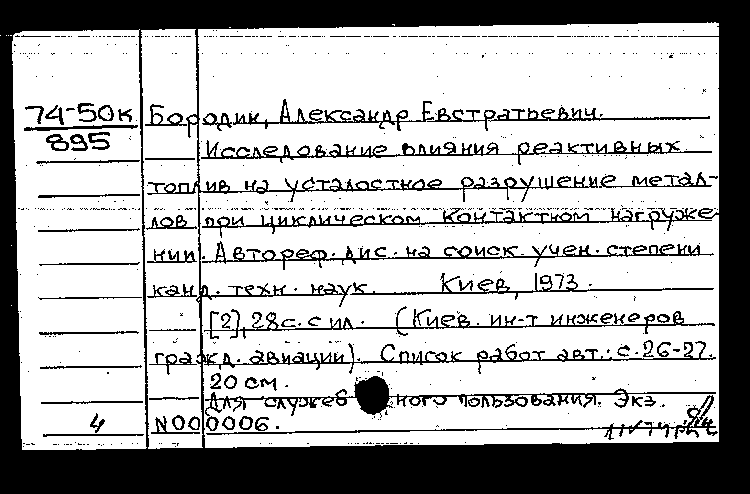 74-50к Бородин, Александр Евстратьевич.
895
Исследование влияния реактивных
топлив на усталостное разрушение метал-
лов при циклическом контактном нагруже-
нии. Автореф. дис. на соиск. учен. степени
канд. техн. наук. Киев, 1973.
[2], 28 с. с ил. (Киев. ин-т инженеров
гражд. авиации). Список работ авт.: с. 26-27.
20 см.
Для служеб ного пользования. Экз.
4 N000006.